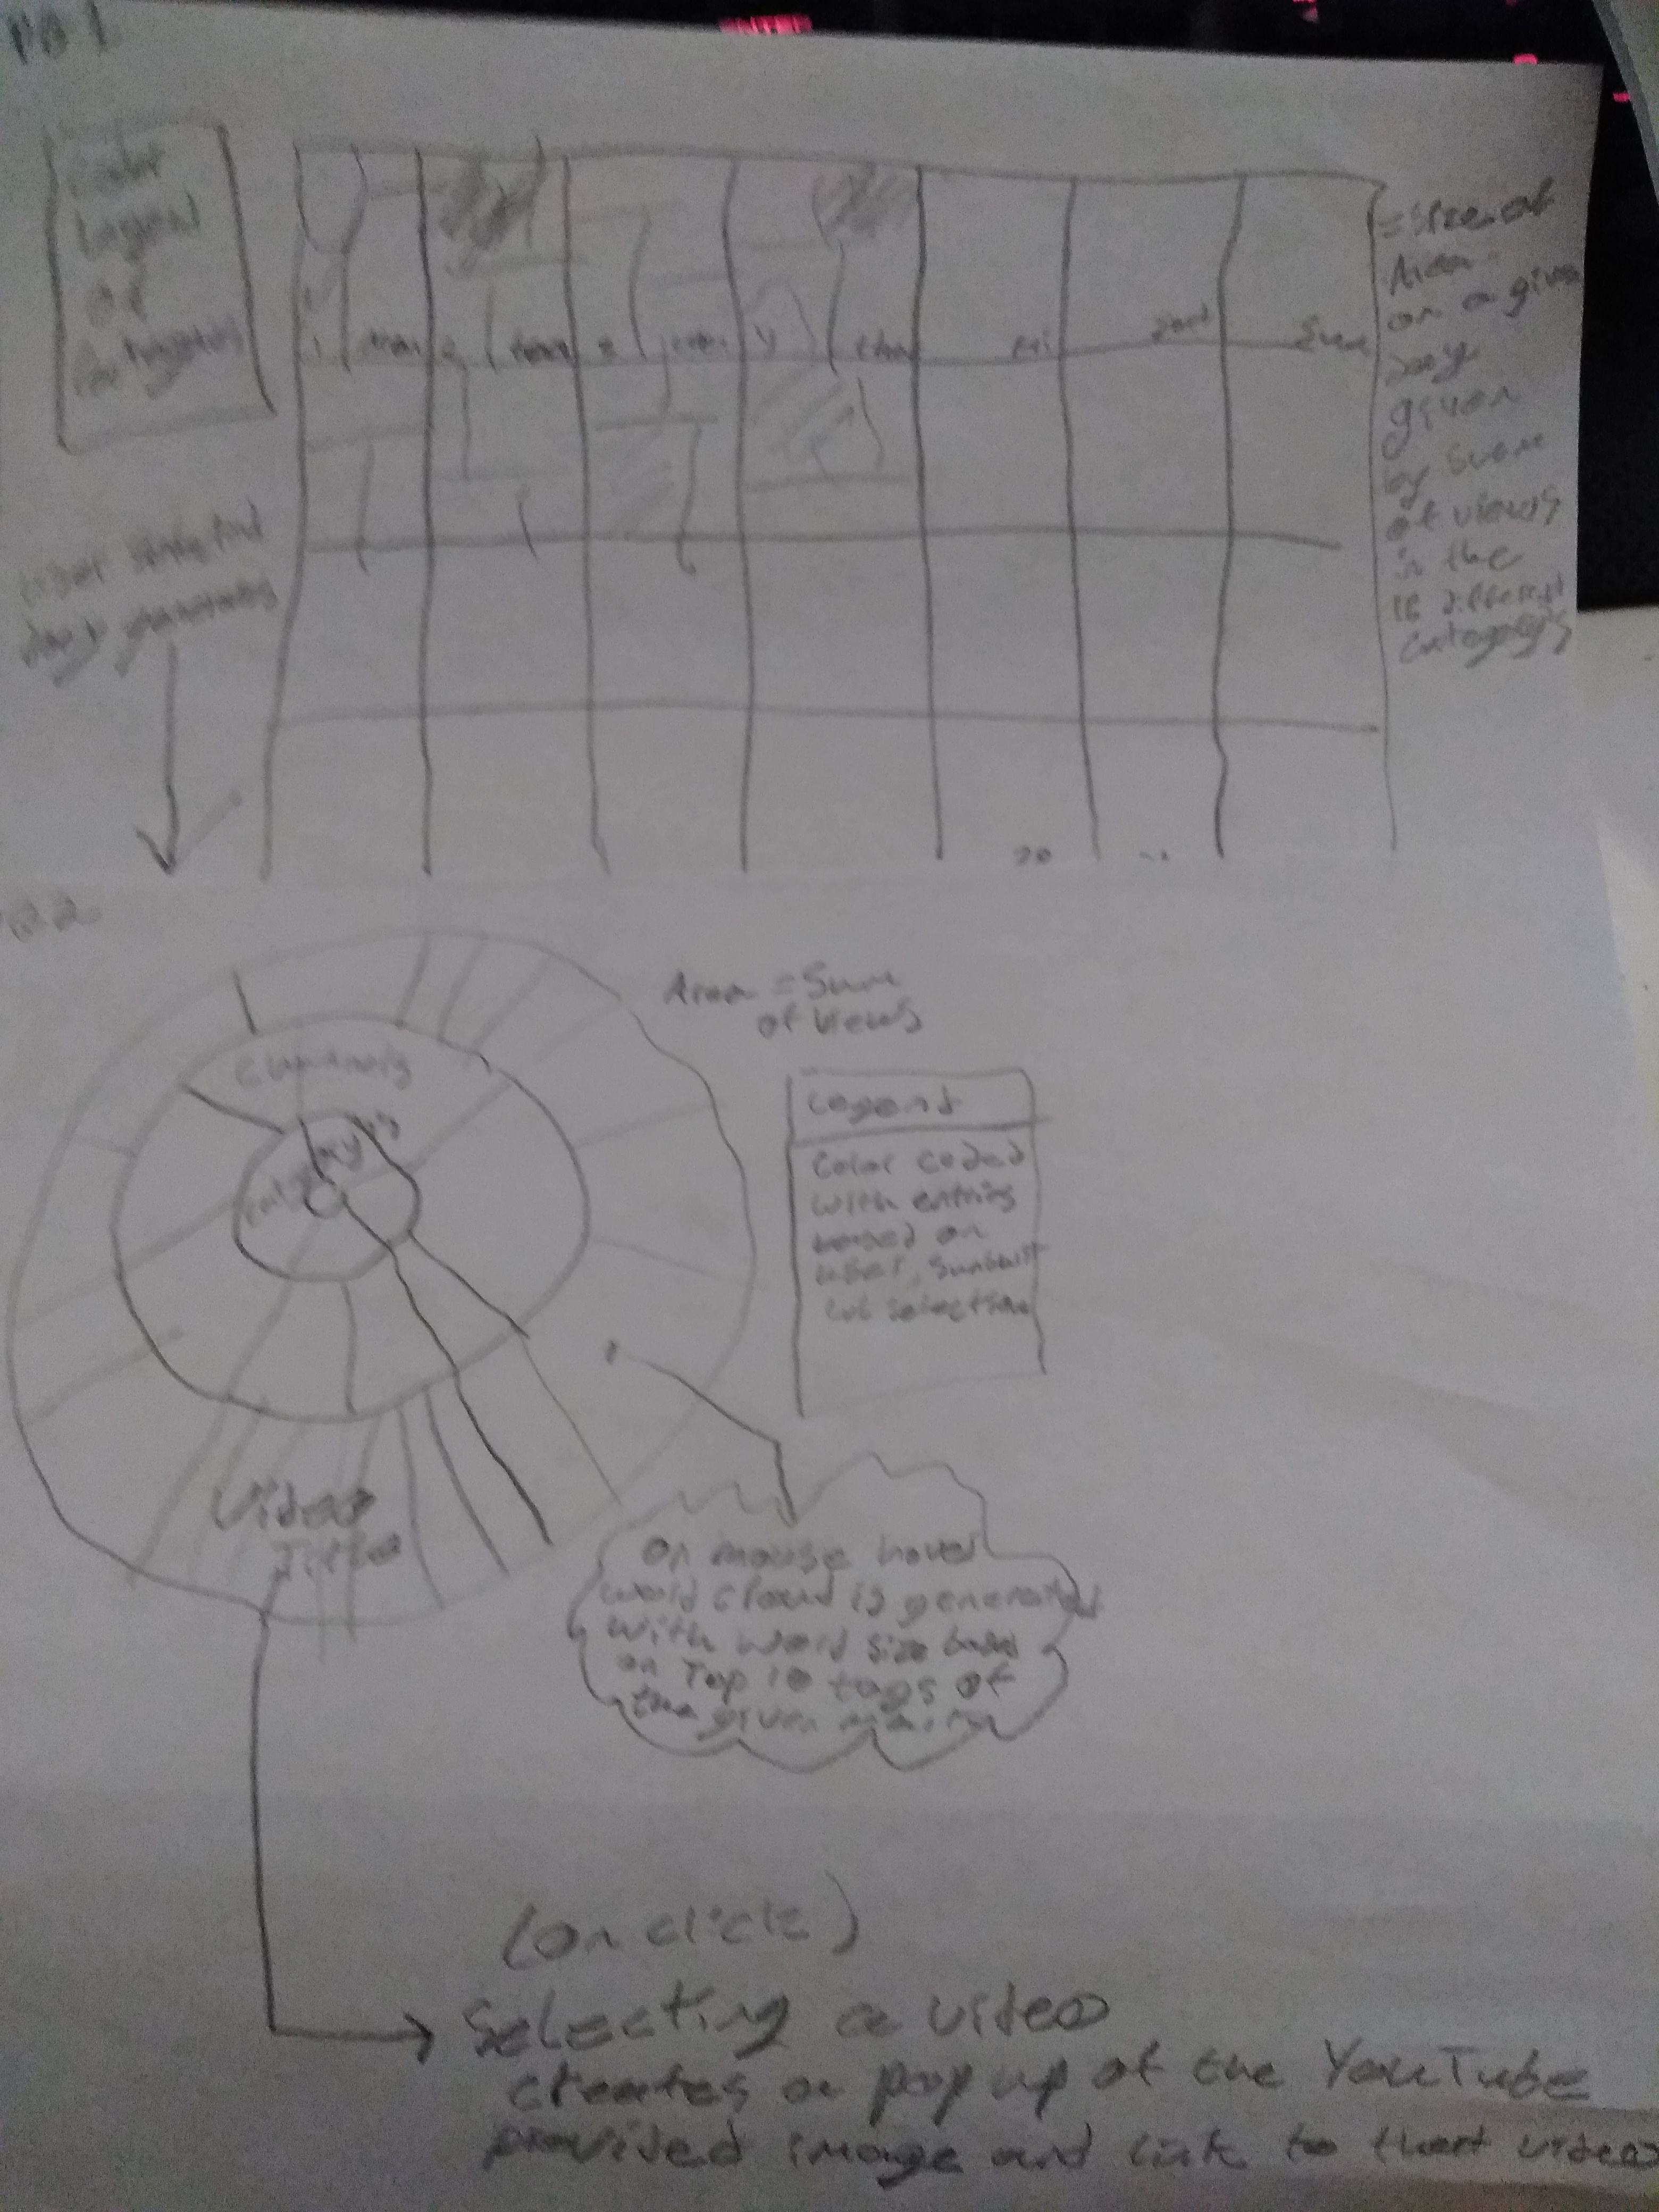 PG 1
Color
Legend
of
Categories
1 mon 2 tues 3 wen 4 thu Fri Sat Sun
= Size of
Area
on a given
day
given
by Sum
of views
in the
16 different
category's
User selected
day generates
20 ..
PG 2
Area = Sum
of Views
Channels
Category's
Legend
Color coded
with entries
based on
user, Sunburst
selection
Video
Title
On mouse hover
word cloud is generated
with word size based
on Top 10 tags of
the given
(on click)
Selecting a video
creates a pop up of the YouTube
provided image and link to that video